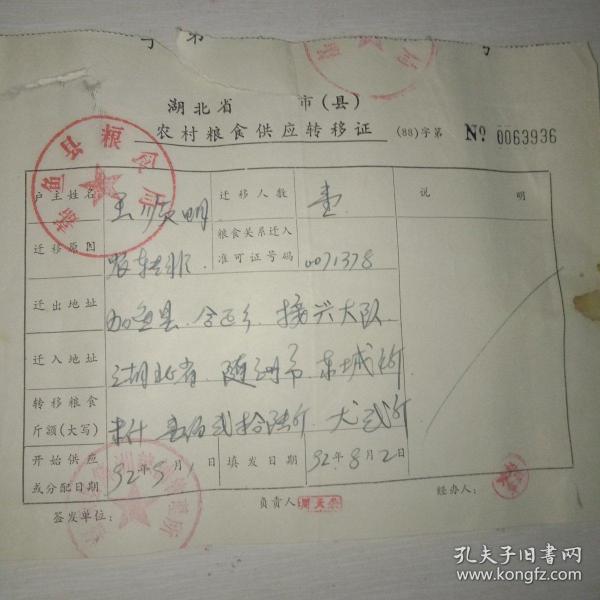 字 第 号
湖北省 市(县)
农村粮食供应转移证 (88)字第 № 0063936
嘉鱼县粮食局
户主姓名 王顺明 迁移人数 壹 说 明
迁移原因 农转非 粮食关系迁入准可证号码 0071378
迁出地址 加鱼县 合正乡 接兴大队
迁入地址 湖北省 随州市 东城
转移粮食斤额(大写) 壹佰贰拾陆斤 弍斤
开始供应或分配日期 92年9月1日 填发日期 92年8月2日
签发单位: 负责人: 经办人:
孔夫子旧书网
www.kongfz.com